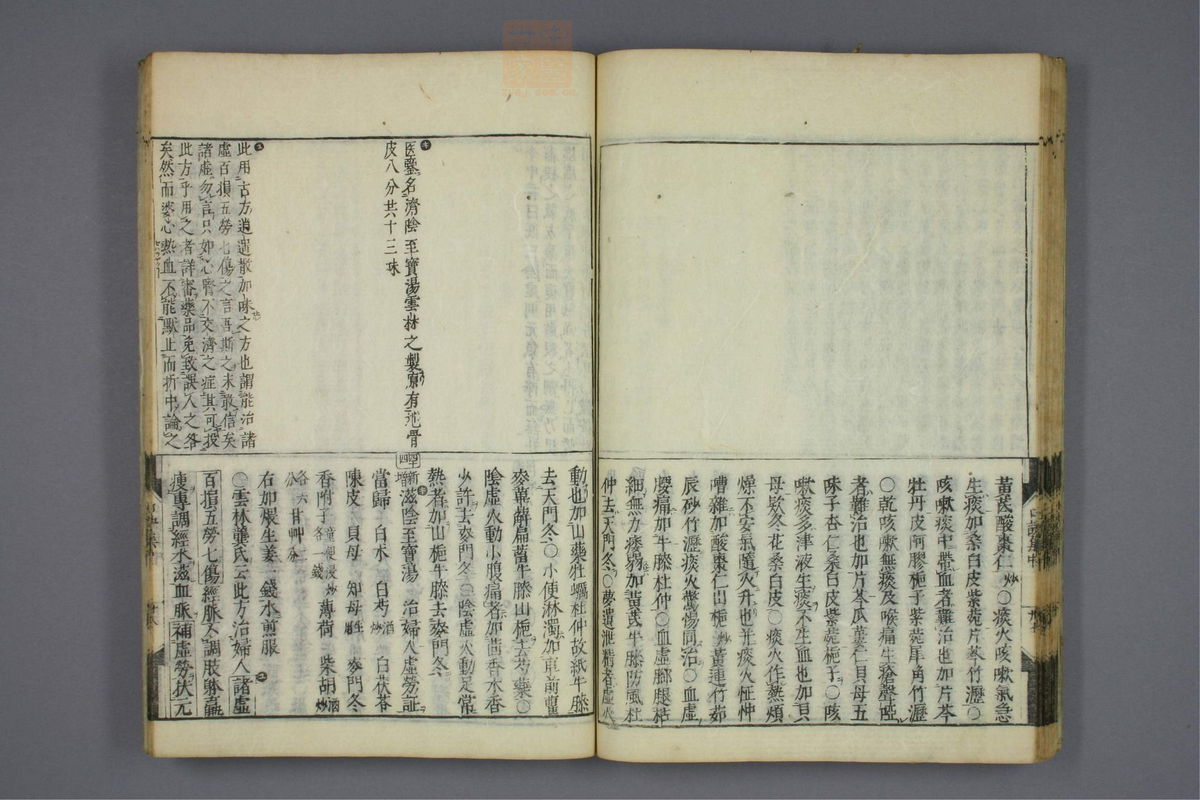 黃芪酸棗仁炒○痰火咳嗽氣急
生痰加桑白皮紫菀片芩竹瀝○
咳嗽痰中帶血者難治也加片芩
牡丹皮阿膠梔子紫菀犀角竹瀝
○乾咳嗽無痰及喉痛生瘡聲啞
者難治也加片芩瓜蔞仁貝母五
味子杏仁桑白皮紫菀梔子○咳
嗽痰多津液生痰不生血也加貝
母欵冬花桑白皮○痰火作熱煩
燥不安氣隨火升也平痰火怔忡
嘈雜加酸棗仁山梔炒黃連竹茹
辰砂竹瀝痰火驚惕同治○血虛
腰痛加牛膝杜仲○血虛腳腿枯
細無力痿弱加黃芪牛膝防風杜
仲去天門冬○夢遺泄精者虛火
医鑒名濟陰至寶湯雲林之製原有地骨
皮八分共十三味
此用古方逍遙散加味之方也謂能治諸
虛百損五勞七傷之言吾斯之未敢信矣
諸虛勿言只如心腎不交濟之症其可投
此方乎用之者詳審藥品免致誤人之咎
矣然而婆心熱血不能默止而折中論之
動也加山藥牡蠣杜仲故紙牛膝
去天門冬○小便淋濁加車前瞿
麥萆薢扁蓄牛膝山梔去芍藥○
陰虛火動小腹痛者加茴香木香
少許去麥門冬○陰虛火動足常
熱者加山梔牛膝去麥門冬
新增滋陰至寶湯 治婦人虛勞証
當歸 白朮 白芍酒炒 白茯苓
陳皮 貝母 知母生 麥門冬
香附子童便浸炒各一錢 薄荷 柴胡酒炒
各六分甘艸
右加煨生姜一錢水煎服
○雲林龔氏云此方治婦人諸虛
百損五勞七傷經脈不調肢躰羸
瘦專調經水滋血脈補虛勞扶元